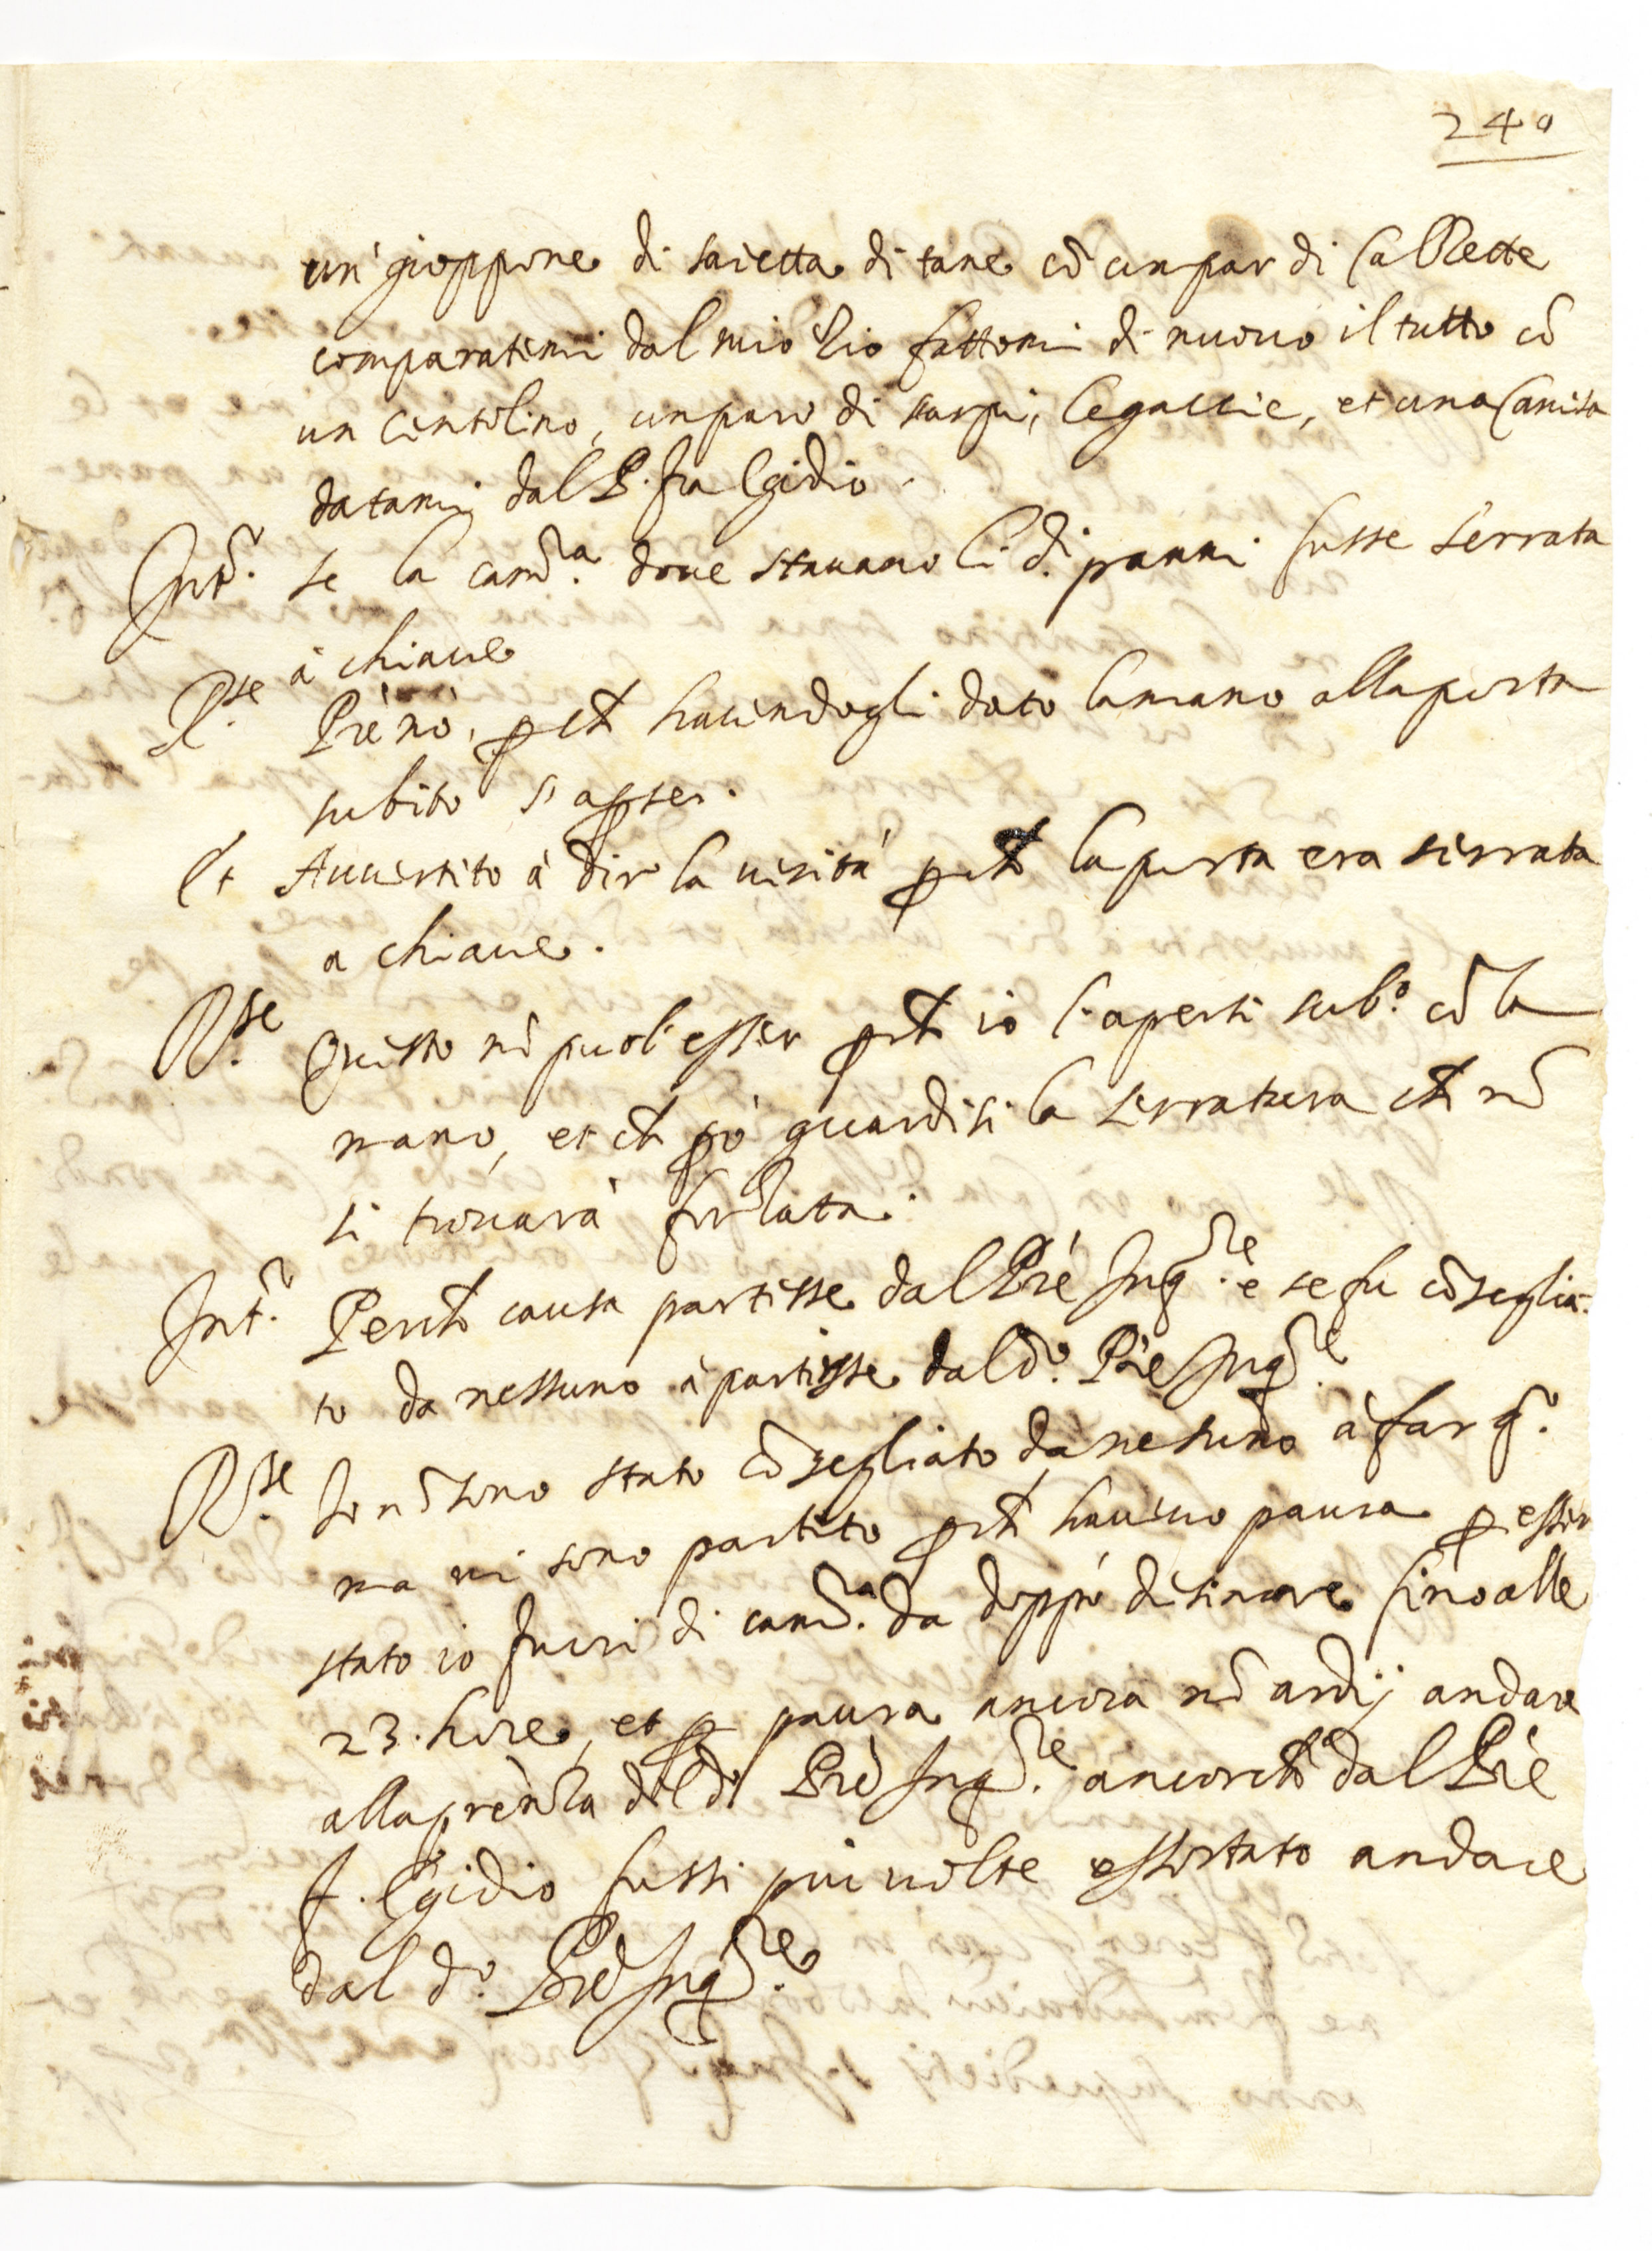 240
un' gioppone di saietta di tane cō un par di Calzette
comparatemi dal mio Zio fattomi di nuovo il tutto cō
un Centolino, un paro di scarpi, legaccie, et una Camisa
datami dal P. fra Egidio.
Int.º se la cam.ª dove stavano li d.i panni fusse serrata
à chiave
R.se Prè nò, p che havendogli dato la mano alla porta
subito s'aperse.
Et Avvertito à dir la verità p che la porta era serrata
a chiave.
R.se Questo nō puol' esser p che io l'apersi sub.º cō la
mano, et che p ò guardisi la serratura che nō
si trovarà forzata.
Int.º Per che causa partisse dal Prè Inq.re e se fu cōseglia-
to da nessuno à partisse dal d.º Prè Inq.re
R.se Io nō sono stato cōsegliato da nessuno à far q.º
ma mi sono partito p che havevo paura p esser
stato io fuori di cam.ª da doppò desinare sino alle
23. hore, et p paura ancora nō ardij andare
alla prēza del d.º Prè Inq.re ancorche dal Prè
f. Egidio fussi piu volte essortato andare
dal d.º Prè Inq.re